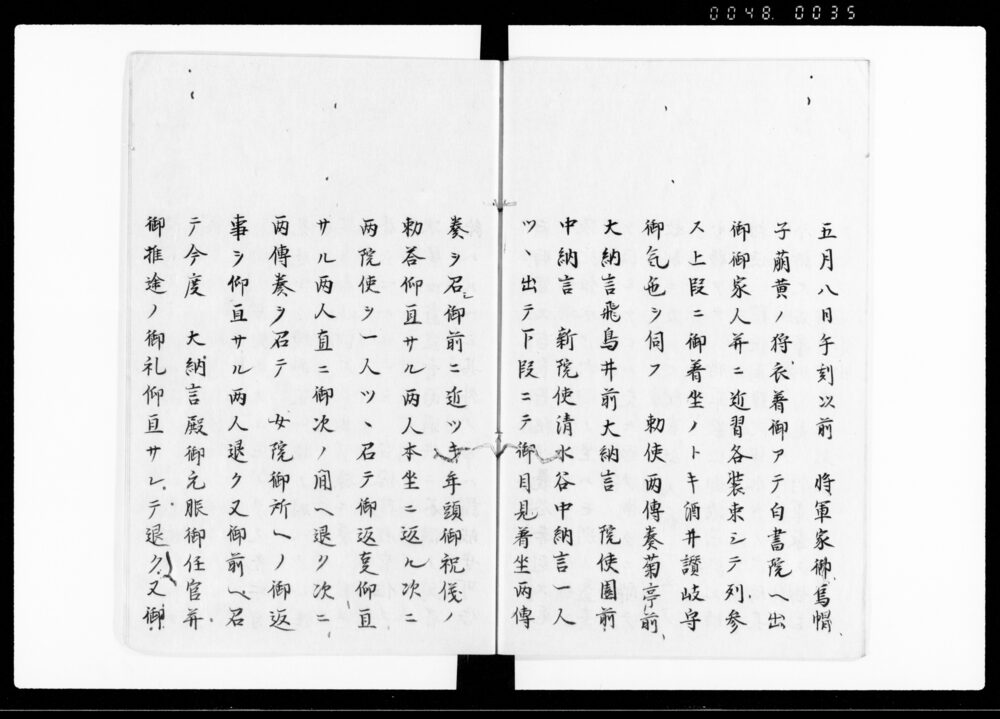 0048. 0035
五月八日午刻以前　将軍家御烏帽
子萠黄ノ狩衣着御アテ白書院ヘ出
御御家人并ニ近習各装束シテ列参
ス上段ニ御着坐ノトキ酒井讃岐守
御気色ヲ伺フ　勅使両傳奏菊亭前
大納言飛鳥井前大納言　院使園前
中納言　新院使清水谷中納言一人
ツヽ出テ下段ニテ御目見着坐両傳
奏ヲ召御前ニ近ツキ年頭御祝儀ノ
勅答仰亘サル両人本坐ニ返ル次ニ
両院使ヲ一人ツヽ召テ御返夏仰亘
サル両人直ニ御次ノ間ヘ退ク次ニ
両傳奏夕召テ　女院御所ヘノ御返
事ヲ仰亘サル両人退ク又御前ヘ召
テ今度　大納言殿御元服御任官并
御推途ノ御礼仰亘サレテ退ク又御